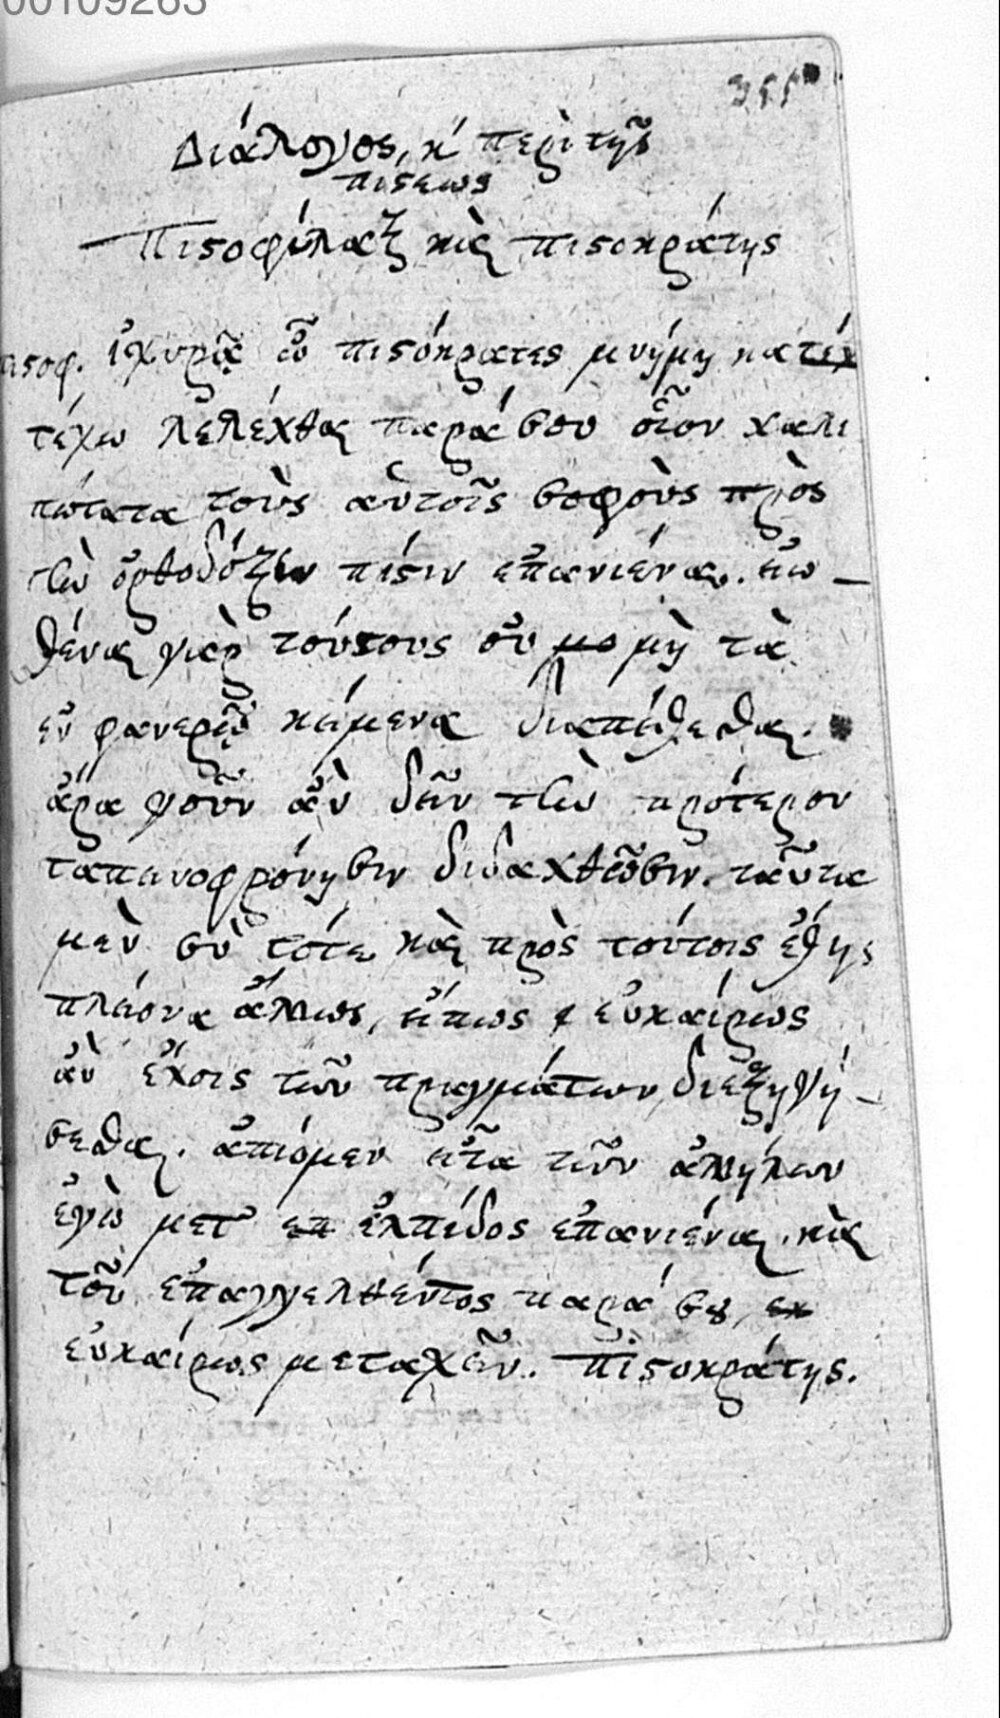 00109263
355
Διάλογος, ἢ περὶ τῆς
πίστεως
Πιστοφύλαξ καὶ πιστοκράτης
πιστοφ. ἰχυρᾷ ὦ πιστόκρατες μνήμῃ κατέχ
τέχω λελέχθαι παρά σου οἷον χαλε
πώτατα τοὺς αὐτοῖς σοφοὺς πρὸς
τὴν ὀρθοδόξων πίστιν ἐπανιέναι. εἰω-
θέναι γὰρ τούτους οὐ μο μὴ τὰ
ἐν φανερῷ κείμενα διαπείθεσθαι.
ἆρα γοῦν ἂν δεῖν τὴν πρότερον
ταπεινοφρόνησιν διδαχθεῖσιν. ταῦτα
μὲν σὺ τότε καὶ πρὸς τούτοις ἔθης
πλείονα ἄλλως, εἴπως εὐκαίρως
ἂν ἔχοις τῶν πραγμάτων διεξηγή-
σεσθαι. ἀπιόμεν εἶτα τῶν ἀλλήλων
ἐγὼ μετ' επ ἐλπίδος ἐπανιέναι. καὶ
τοῦ ἐπαγγελθέντος παρά σου, εκ
εὐκαίρως μετασχεῖν. Πιστοκράτης.